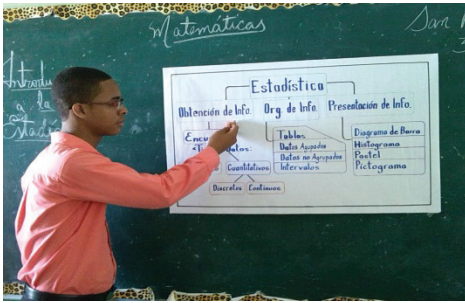 Matemáticas
San
Introdu
a la
Estadí
Estadística
Obtención de Info.
Org. de Info.
Presentación de Info.
Encu
Datos:
Cuantitativos
Discretos
Continuos
Tablas
Datos Agupados
Datos no Agrupados
Intervalos
Diagrama de Barra
Histograma
Pastel
Pictograma